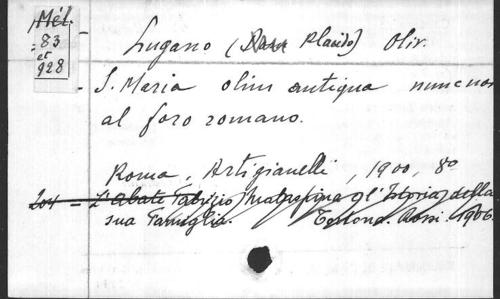 Mél.
83
et
928
Lugano (Dom Placido) Oliv.
- S. Maria olim antiqua nunc nova
al foro romano.
Roma, Artigianelli, 1900, 8º
201 = L'Abate Fabrizio Malaspina e l'Istoria della
sua Famiglia. Tortona. Rossi. 1906.